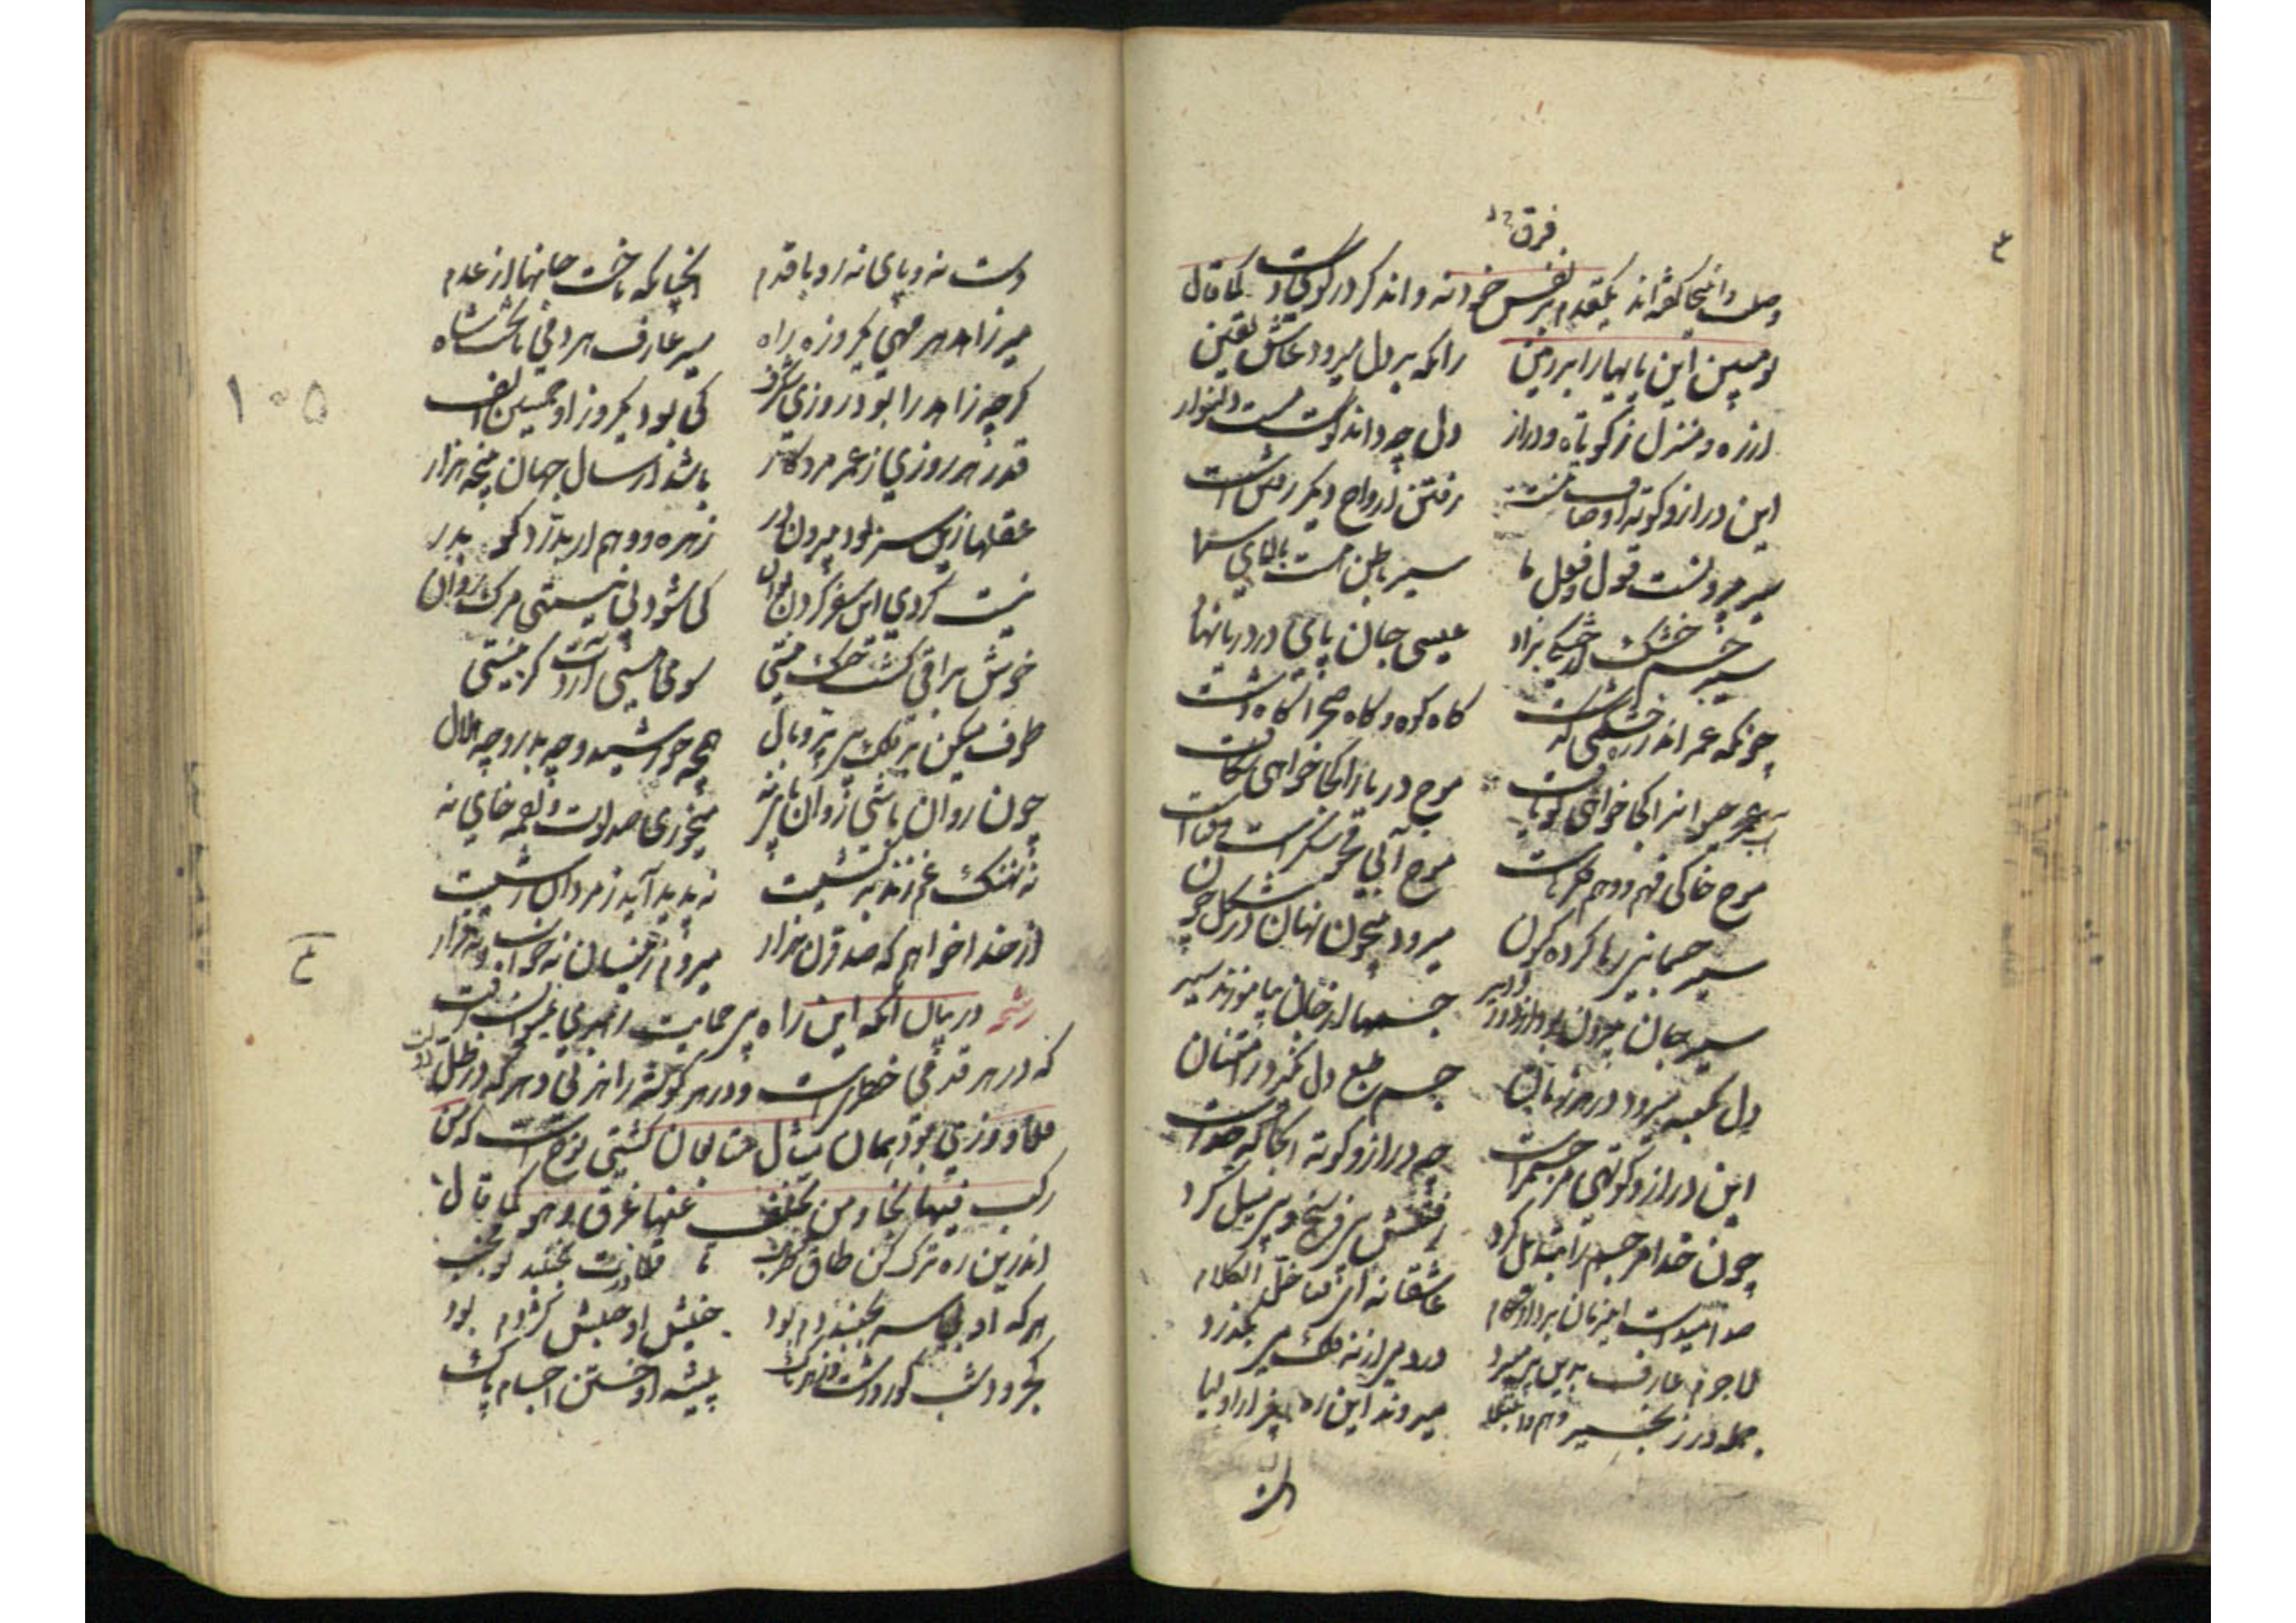 فرق
وصلت و اینجا گفته‌اند یکقدم بر نفس خود نه و اندگر در کوی دوست کما قال
تو مبین این پایها را بر زمین
زانکه بر دل میرود عاشق یقین
از ره و منزل ز کوتاه و دراز
دل چه داند کوست مست دلنواز
این دراز و کوته اوصاف تنست
رفتن ارواح دیگر رفتن است
سیر بیرونست قول و فعل ما
سیر باطن هست بالای سما
سیر جسم خشک بر خشکی فتاد
عیسی جان پای در دریا نهاد
چونکه عمر اندر ره خشکی گذشت
گاه کوه و گاه صحرا گاه دشت
آب حیوانرا کجا خواهی تو یافت
موج دریا را کجا خواهی شکافت
موج خاکی فهم و وهم و فکر ماست
موج آبی محو و سکرست و فناست
سیر جسمانی رها کرده کنون
میرود بیچون نهان در شکل چون
سیر جان بیچون بود در دور و دیر
جسمها از جان بیاموزند سیر
دل بکعبه میرود در هر زمان
جسم طبع دل بگیرد ز امتنان
این دراز و کوتهی مر جسم راست
چه دراز و کوته آنجا که خداست
چون خدا مر جسم را تبدیل کرد
رفتنش بی فرسخ و بی میل کرد
صد امیدست این زمان بردار گام
عاشقانه ای فتی خل الکلام
لاجرم عارف بدین پی میبرد
در دمی از نه فلک می بگذرد
جمله در زنجیر
میروند این ره بغیر از اولیا
دست نه و پای نه رو با قدم
آنچنانکه تاخت جانها از عدم
سیر زاهد هر مهی یکروزه راه
سیر عارف هر دمی تا تخت شاه
گرچه زاهد را بود روزی شگرف
کی بود یکروز او خمسین الف
قدر هر روزی ز عمر مرد کار
باشد از سال جهان پنجه هزار
عقلها زین سر بود بیرون در
زهره وهم ار بدرد گو بدر
کی شود بی نیستی مرکب روان
خوش براقی گشت خنگ نیستی
سوی هستی آردت گر نیستی
چه خورشید و چه بدر و چه هلال
چون روان باشی روان و پای نه
میخوری صد لوت و لقمه خای نه
نه نهنگ غم زند بر کشتیت
نه پدید آید ز مردن زشتیت
از خدا خواهم که صد قرن هزار
رشحه در بیان آنکه این راه بی حمایت راهبری نمیتوان رفت
که در هر قدمی خطریست و در هر گوشه راهزنی و هر که در ظل
رکب فیها نجا و من تخلف عنها غرق و هو کما قال
اندرین ره ترک کن طاق و طرنب
تا قلاوزت نجنبد تو مجنب
هر که او بی سر بجنبد دم بود
جنبش او جنبش کژدم بود
کجرو و شب کور و زشت و زهرناک
پیشه او خستن اجسام پاک
۱۰۵